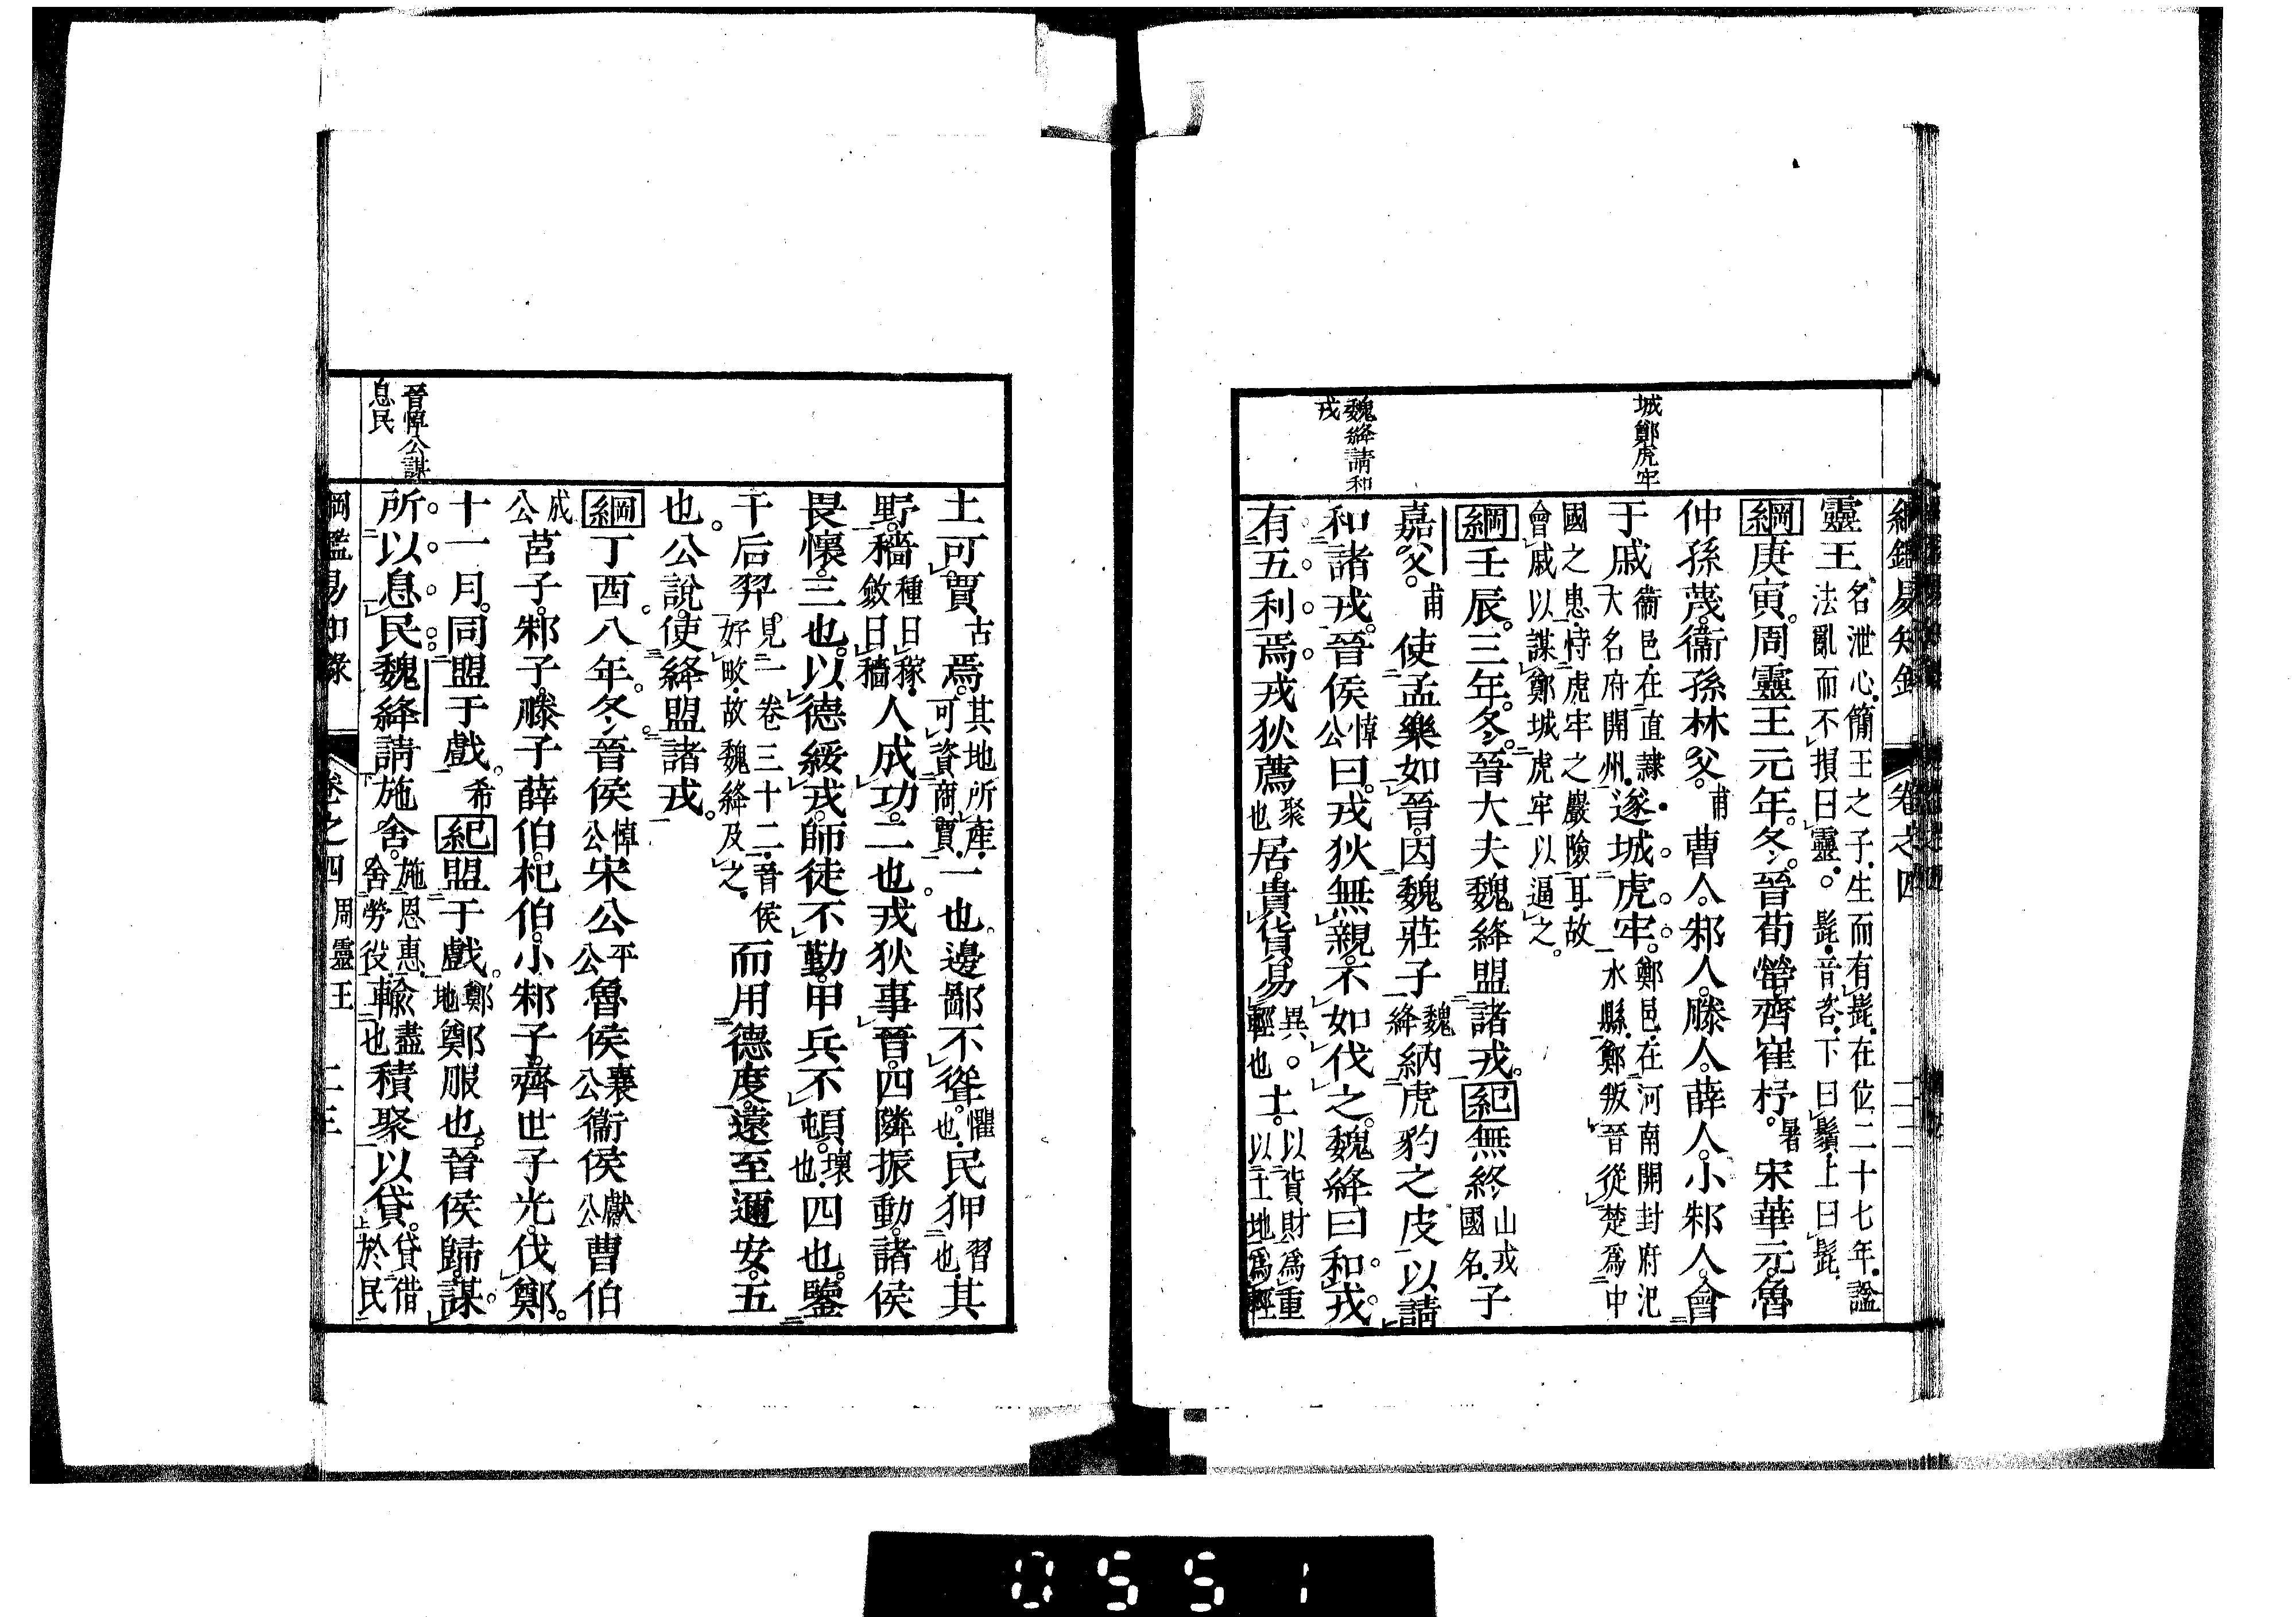 城鄭虎牢
魏絳請和
戎
綱鑑易知錄 卷之四 二二
靈王名泄心簡王之子生而有髭在位二十七年諡法亂而不損曰靈。髭音咨下曰鬚上曰髭
綱庚寅周靈王元年冬晉荀罃齊崔杼暑宋華元魯
仲孫蔑衞孫林父甫曹人邾人滕人薛人小邾人會
于戚衞邑在直隷大名府開州遂城虎牢鄭邑在河南開封府汜水縣鄭叛晉從楚爲中
國之患恃虎牢之嚴險耳故會戚以謀鄭城虎牢以逼之
綱壬辰三年冬晉大夫魏絳盟諸戎紀無終山戎國名子
嘉父甫使孟樂如晉因魏莊子魏絳納虎豹之皮以請
和諸戎晉侯悼公曰戎狄無親不如伐之魏絳曰和戎
有五利焉戎狄薦聚也居貴貨易異。輕也土以貨財爲重以土地爲輕
土可賈古焉其地所產可資商賈一也邊鄙不聳懼也民狎習也其
野穡種曰稼斂曰穡人成功二也戎狄事晉四隣振動諸侯
畏懷三也以德綏戎師徒不勤甲兵不頓壞也四也鑒
于后羿見一卷三十二晉侯好畋故魏絳及之而用德度遠至邇安五
也公說使絳盟諸戎
綱丁酉八年冬晉侯悼公宋公平公魯侯襄公衞侯獻公曹伯
成公莒子邾子滕子薛伯杞伯小邾子齊世子光伐鄭
十一月同盟于戲希紀盟于戲鄭地鄭服也晉侯歸謀
所以息民魏絳請施舍施恩惠舍勞役輸盡車也積聚以貸貸借於民
晉悼公謀
息民
綱鑑易知錄 卷之四 周靈王 二三
0551